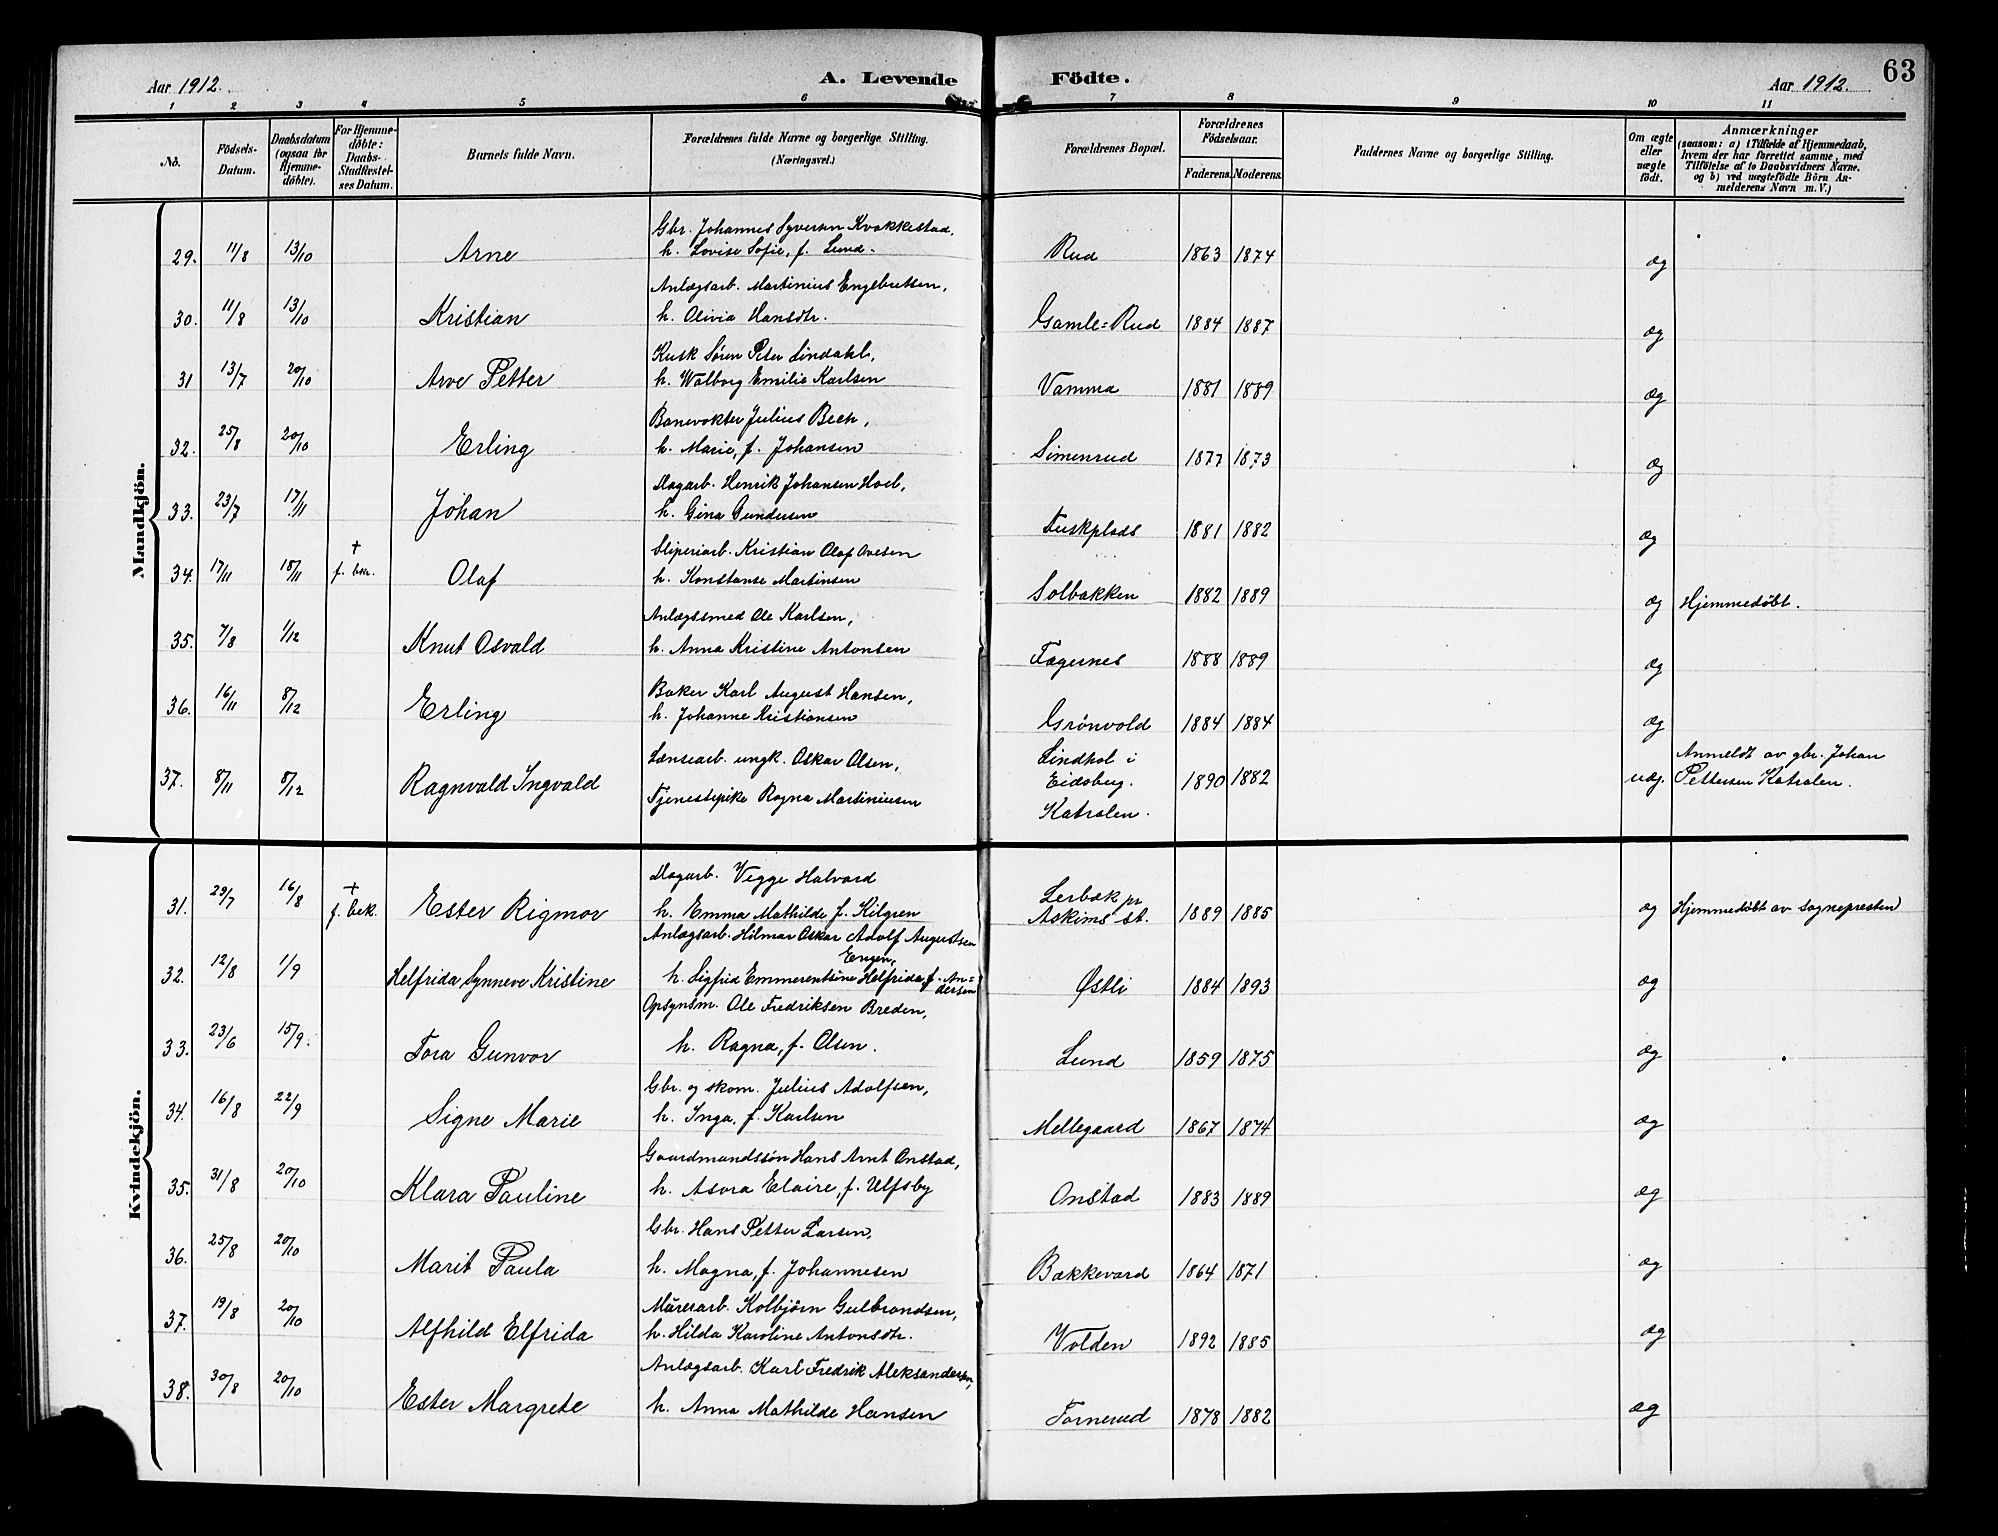 Aar 1912. A. Levende Födte. Aar 1912. 63
1 2 3 4 5 6 7 8 9 10 11
No. Födsels-Datum. Daabsdatum (ogsaa for Hjemmedöbte). For Hjemmedöbte: Daabs-Stadfæstelses Datum. Barnets fulde Navn. Forældrenes fulde Navne og borgerlige Stilling. (Næringsvei.) Forældrenes Bopæl. Forældrenes Födselsaar. Faderens. Moderens. Faddernes Navne og borgerlige Stilling. Om ægte eller uægte født. Anmærkninger (saasom: a) i Tilfælde af Hjemmedaab, hvem der har forrettet samme, med Tilföielse af to Daabsvidners Navne, og b) ved uægtefödte Börn Anmelderens Navn m. V.)
Mandkjön.
Gbr. Johannes Syversen Kvakkestad,
29. 11/8 13/10 Arne h. Lovise Sofie, f. Lund. Rud 1863 1874 æg
Anlægsarb. Martinius Engebretsen,
30. 11/8 13/10 Kristian h. Olivia Hansdtr. Gamle=Rud 1884 1887 æg
Kusk Søren Peter Lindahl,
31 13/7 20/10 Arve Petter h. Walborg Emilie Karlsen Vamma 1881 1889 æg
Banevokter Julius Bech,
32. 25/8 20/10 Erling h. Marie, f. Johansen Simenrud 1877 1873 æg
Dagarb. Henrik Johansen Hoel,
33. 23/7 17/11 Johan h. Gina Gundersen Tuskplads 1881 1882 æg
Sliperiarb. Kristian Olaf Ovesen
34. 17/11 18/11 † f. bek. Olaf h. Konstanse Martinsen Solbakken 1882 1889 æg Hjemmedøbt.
Anlægssmed Ole Karlsen,
35. 7/8 1/12 Knut Osvald h. Anna Kristine Antonsen Fagernes 1888 1889 æg
Baker Karl August Hansen,
36. 16/11 8/12 Erling h. Johanne Kristiansen Grønvold 1884 1884 æg
Lænsearb. ungk. Oskar Olsen, Lindhol i Anmeldt av gbr. Johan
37. 8/11 8/12 Ragnvald Ingvald Eidsberg. 1890 1882 uæg. Pettersen Katralen.
Tjenestepike Ragna Martiniussen Katralen.
Kvindekjön.
Dagarb. Vegge Halvard Lerbæk pr
31. 29/7 16/8 † f. bek. Ester Rigmor h. Emma Mathilde f. Kilgren Askims st. 1889 1885 æg Hjemmedøbt av sognepresten
Anlægsarb. Hilmar Oskar Adolf Augustsen
Engen,
32. 12/8 1/9 Helfrida Synneve Kristine h. Sigfrid Emmerentsine Helfrida f. Andersen Østli 1884 1893 æg
Opsynsm. Ole Fredriksen Breden,
33. 23/6 15/9. Tora Gunvor h. Ragna, f. Olsen. Lund 1859 1875 æg
Gbr. og skom. Julius Adolfsen,
34. 16/8 22/9 Signe Marie h. Inga, f. Karlsen Mellegaard 1867 1874 æg
Gaardmandssøn Hans Arnt Onstad,
35. 31/8 20/10 Klara Pauline h. Asora Elaire, f. Ulfsby Onstad 1883 1889 æg
Gbr. Hans Petter Larsen,
36. 25/8 20/10 Marit Paula h. Magna, f. Johannesen Bakkevard 1864 1871 æg
Murerarb. Kolbjørn Gulbrandsen,
37. 19/8 20/10 Alfhild Elfrida h. Hilda Karoline Antonsdtr. Volden 1892 1885 æg
Anlægsarb. Karl Fredrik Aleksandersen,
38. 30/8 20/10 Ester Margrete h. Anna Mathilde Hansen Tornerud 1878 1882 æg